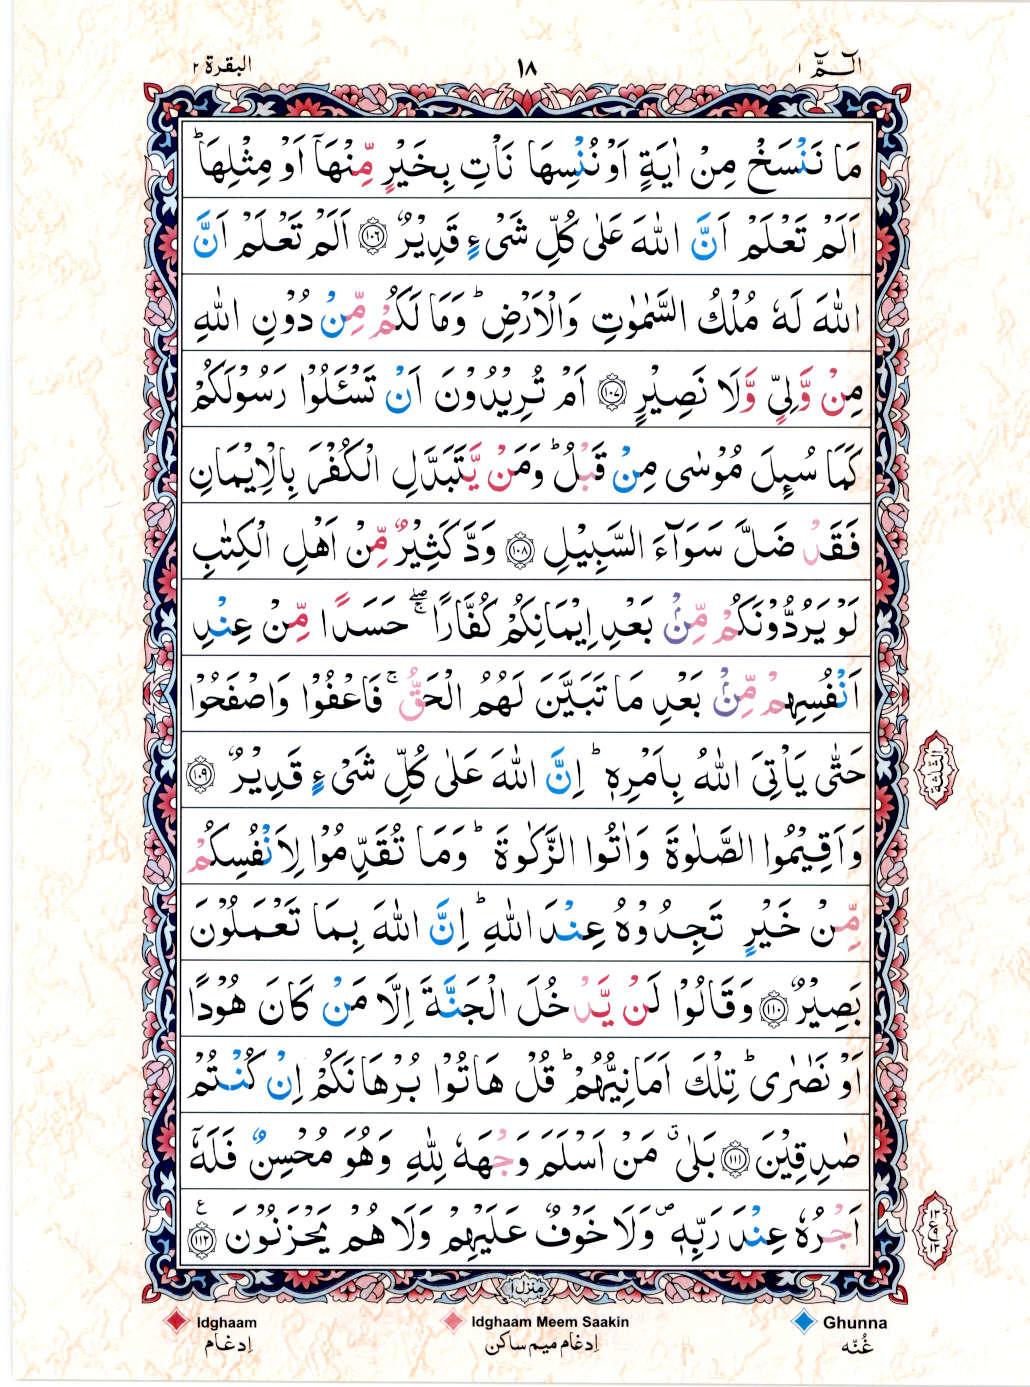 الٓـمّٓ ١ ١٨ البقرة ٢
مَا نَنْسَخْ مِنْ اٰيَةٍ اَوْ نُنْسِهَا نَاْتِ بِخَيْرٍ مِّنْهَآ اَوْ مِثْلِهَا ؕ
اَلَمْ تَعْلَمْ اَنَّ اللّٰهَ عَلٰى كُلِّ شَیْءٍ قَدِيْرٌ ﴿۱۰۶﴾ اَلَمْ تَعْلَمْ اَنَّ
اللّٰهَ لَهٗ مُلْكُ السَّمٰوٰتِ وَالْاَرْضِ ؕ وَمَا لَكُمْ مِّنْ دُوْنِ اللّٰهِ
مِنْ وَّلِيٍّ وَّلَا نَصِيْرٍ ﴿۱۰۷﴾ اَمْ تُرِيْدُوْنَ اَنْ تَسْـَٔلُوْا رَسُوْلَكُمْ
كَمَا سُئِلَ مُوْسٰى مِنْ قَبْلُ ؕ وَمَنْ يَّتَبَدَّلِ الْكُفْرَ بِالْاِيْمَانِ
فَقَدْ ضَلَّ سَوَآءَ السَّبِيْلِ ﴿۱۰۸﴾ وَدَّ كَثِيْرٌ مِّنْ اَهْلِ الْكِتٰبِ
لَوْ يَرُدُّوْنَكُمْ مِّنْۢ بَعْدِ اِيْمَانِكُمْ كُفَّارًا ۖۚ حَسَدًا مِّنْ عِنْدِ
اَنْفُسِهِمْ مِّنْۢ بَعْدِ مَا تَبَيَّنَ لَهُمُ الْحَقُّ ۚ فَاعْفُوْا وَاصْفَحُوْا
حَتّٰى يَاْتِيَ اللّٰهُ بِاَمْرِهٖ ؕ اِنَّ اللّٰهَ عَلٰى كُلِّ شَیْءٍ قَدِيْرٌ ﴿۱۰۹﴾
الثلثة
وَاَقِيْمُوا الصَّلٰوةَ وَاٰتُوا الزَّكٰوةَ ؕ وَمَا تُقَدِّمُوْا لِاَنْفُسِكُمْ
مِّنْ خَيْرٍ تَجِدُوْهُ عِنْدَ اللّٰهِ ؕ اِنَّ اللّٰهَ بِمَا تَعْمَلُوْنَ
بَصِيْرٌ ﴿۱۱۰﴾ وَقَالُوْا لَنْ يَّدْخُلَ الْجَنَّةَ اِلَّا مَنْ كَانَ هُوْدًا
اَوْ نَصٰرٰى ؕ تِلْكَ اَمَانِيُّهُمْ ؕ قُلْ هَاتُوْا بُرْهَانَكُمْ اِنْ كُنْتُمْ
صٰدِقِيْنَ ﴿۱۱۱﴾ بَلٰى ۗ مَنْ اَسْلَمَ وَجْهَهٗ لِلّٰهِ وَهُوَ مُحْسِنٌ فَلَهٗٓ
اَجْرُهٗ عِنْدَ رَبِّهٖ ۪ وَلَا خَوْفٌ عَلَيْهِمْ وَلَا هُمْ يَحْزَنُوْنَ ﴿۱۱۲﴾ ع
۱۳
ع
۱۳
منزل ١
Idghaam Idghaam Meem Saakin Ghunna
اِدغام اِدغام میم ساکن غُنّہ